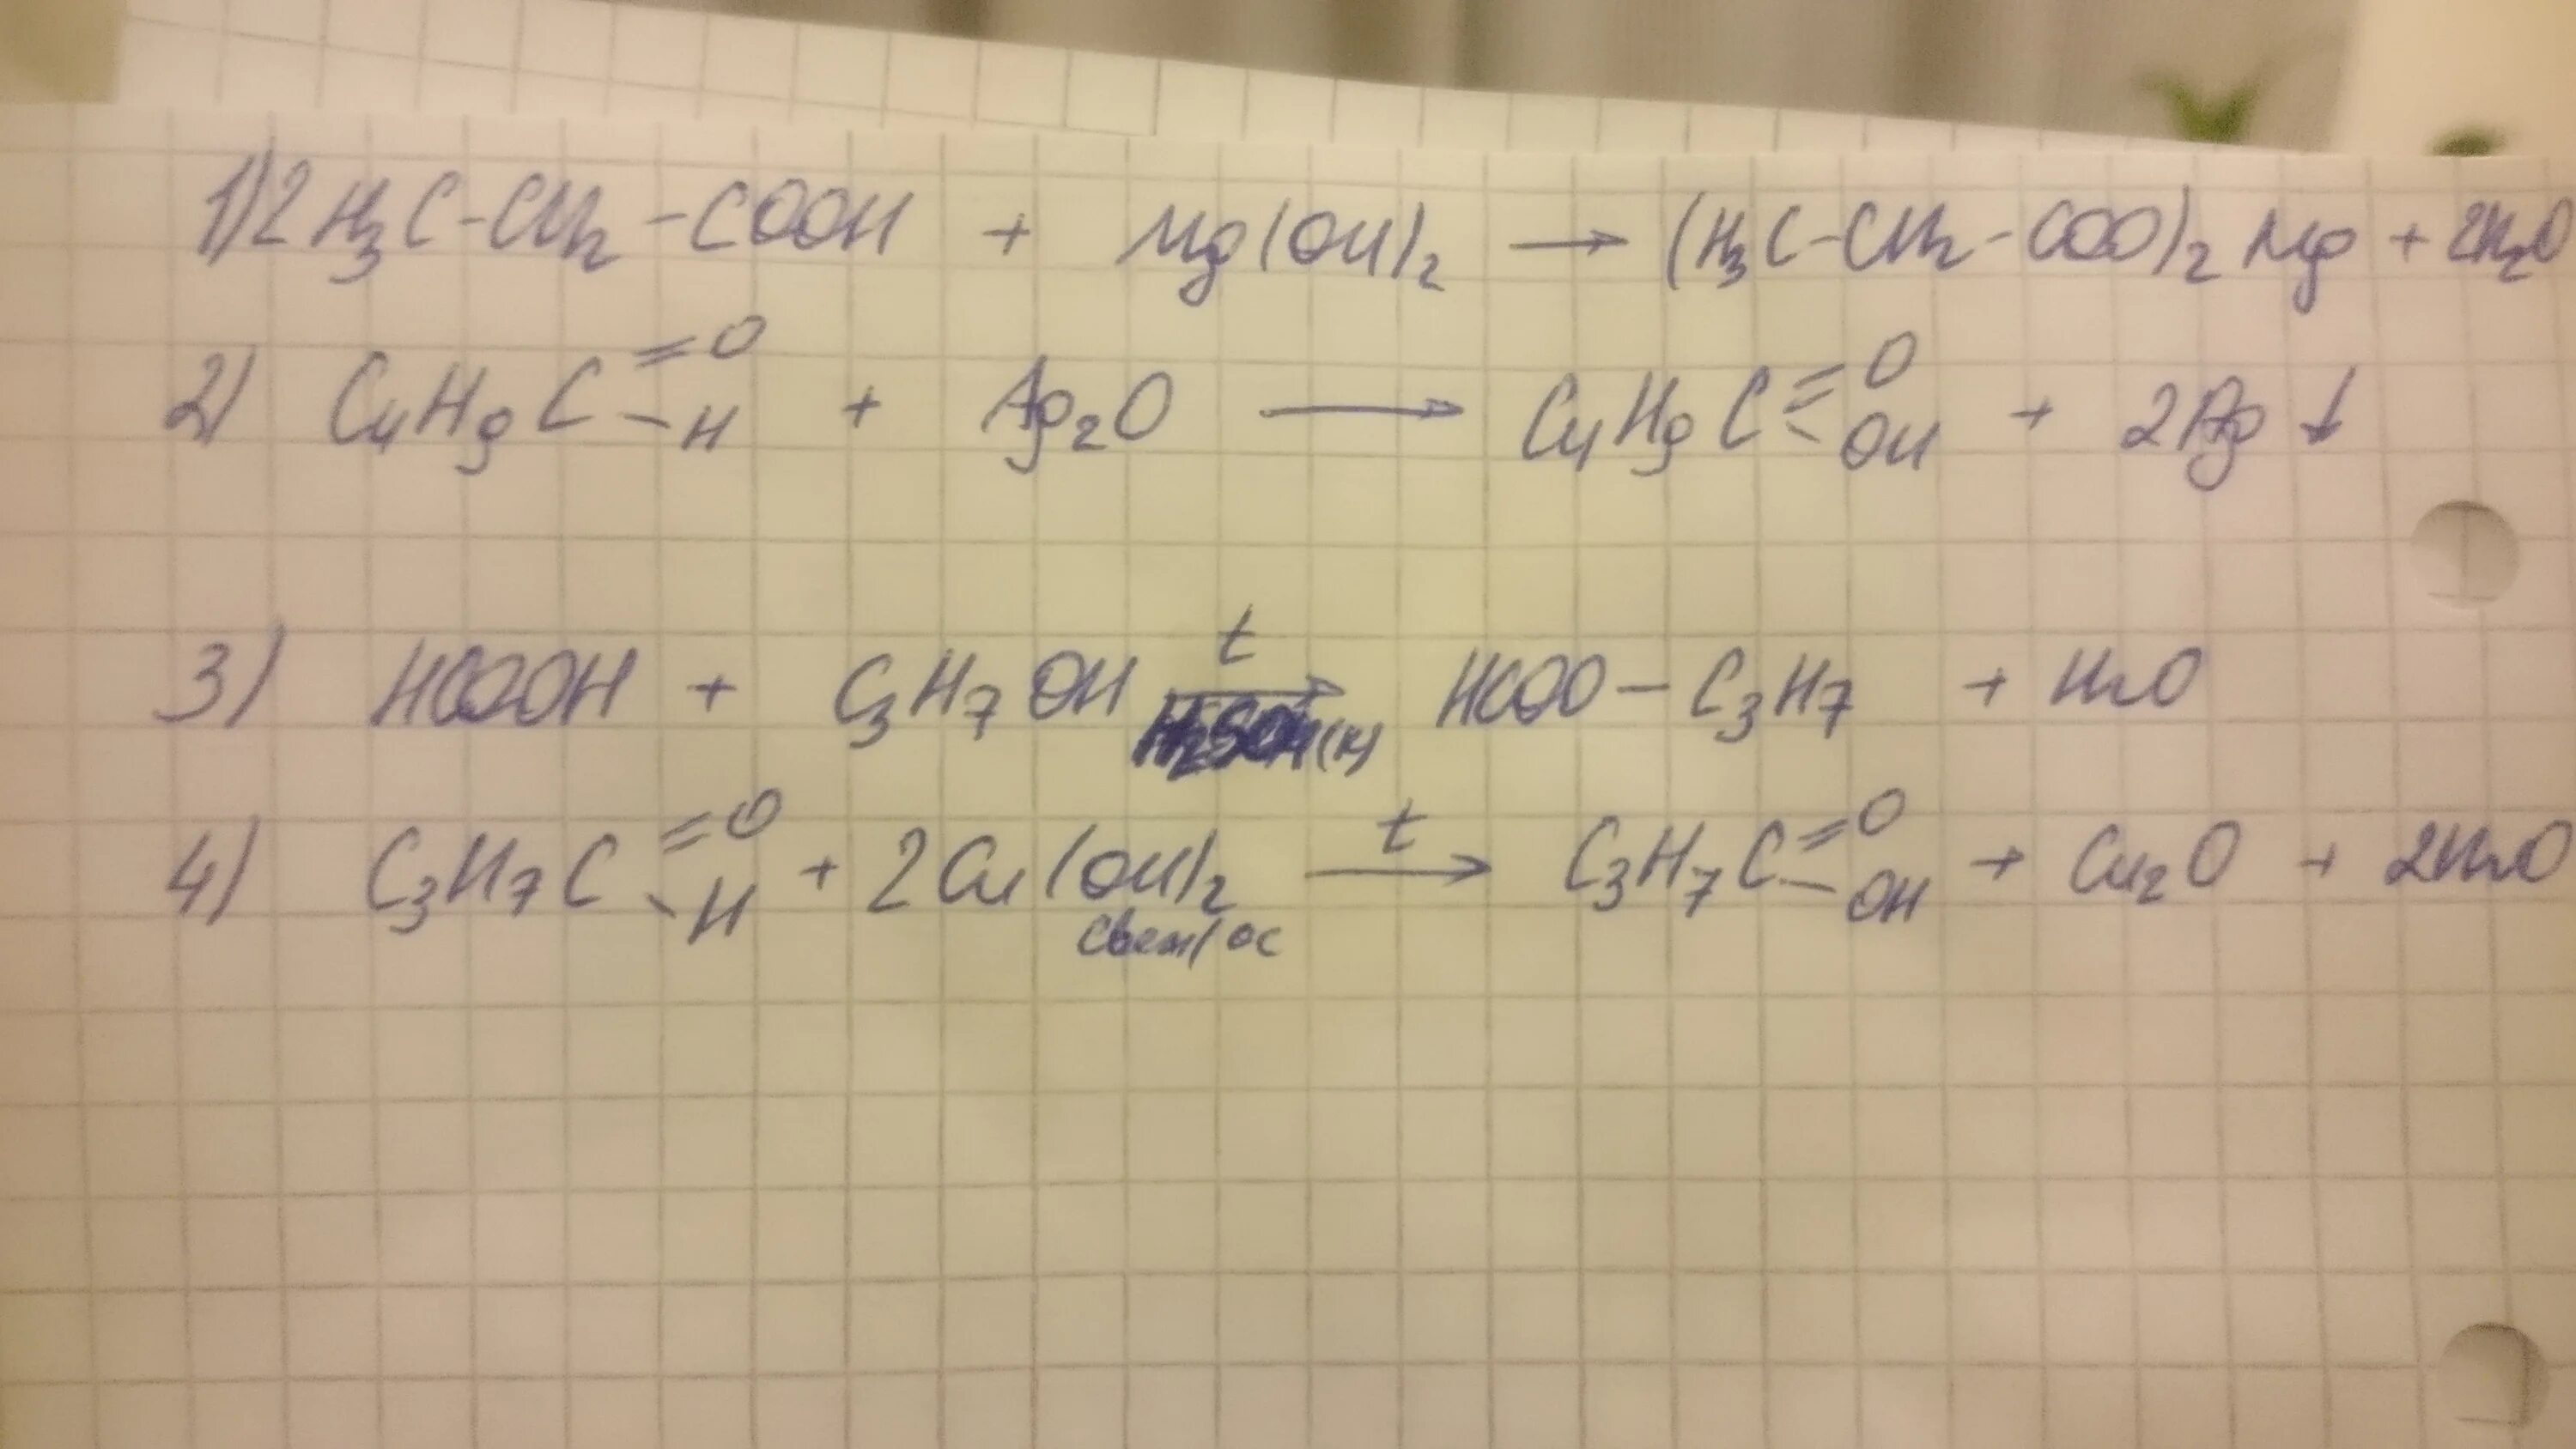 1) 2 H₃C-CH₂-COOH + Mg(OH)₂ → (H₃C-CH₂-COO)₂Mg + 2H₂O
2) C₄H₉C=O-H + Ag₂O → C₄H₉C=O-OH + 2Ag↓
3) HCOOH + C₃H₇OH t→ H₂SO₄(к) HCOO-C₃H₇ + H₂O
4) C₃H₇C=O-H + 2Cu(OH)₂ t→ C₃H₇C=O-OH + Cu₂O + 2H₂O
свеж/ос